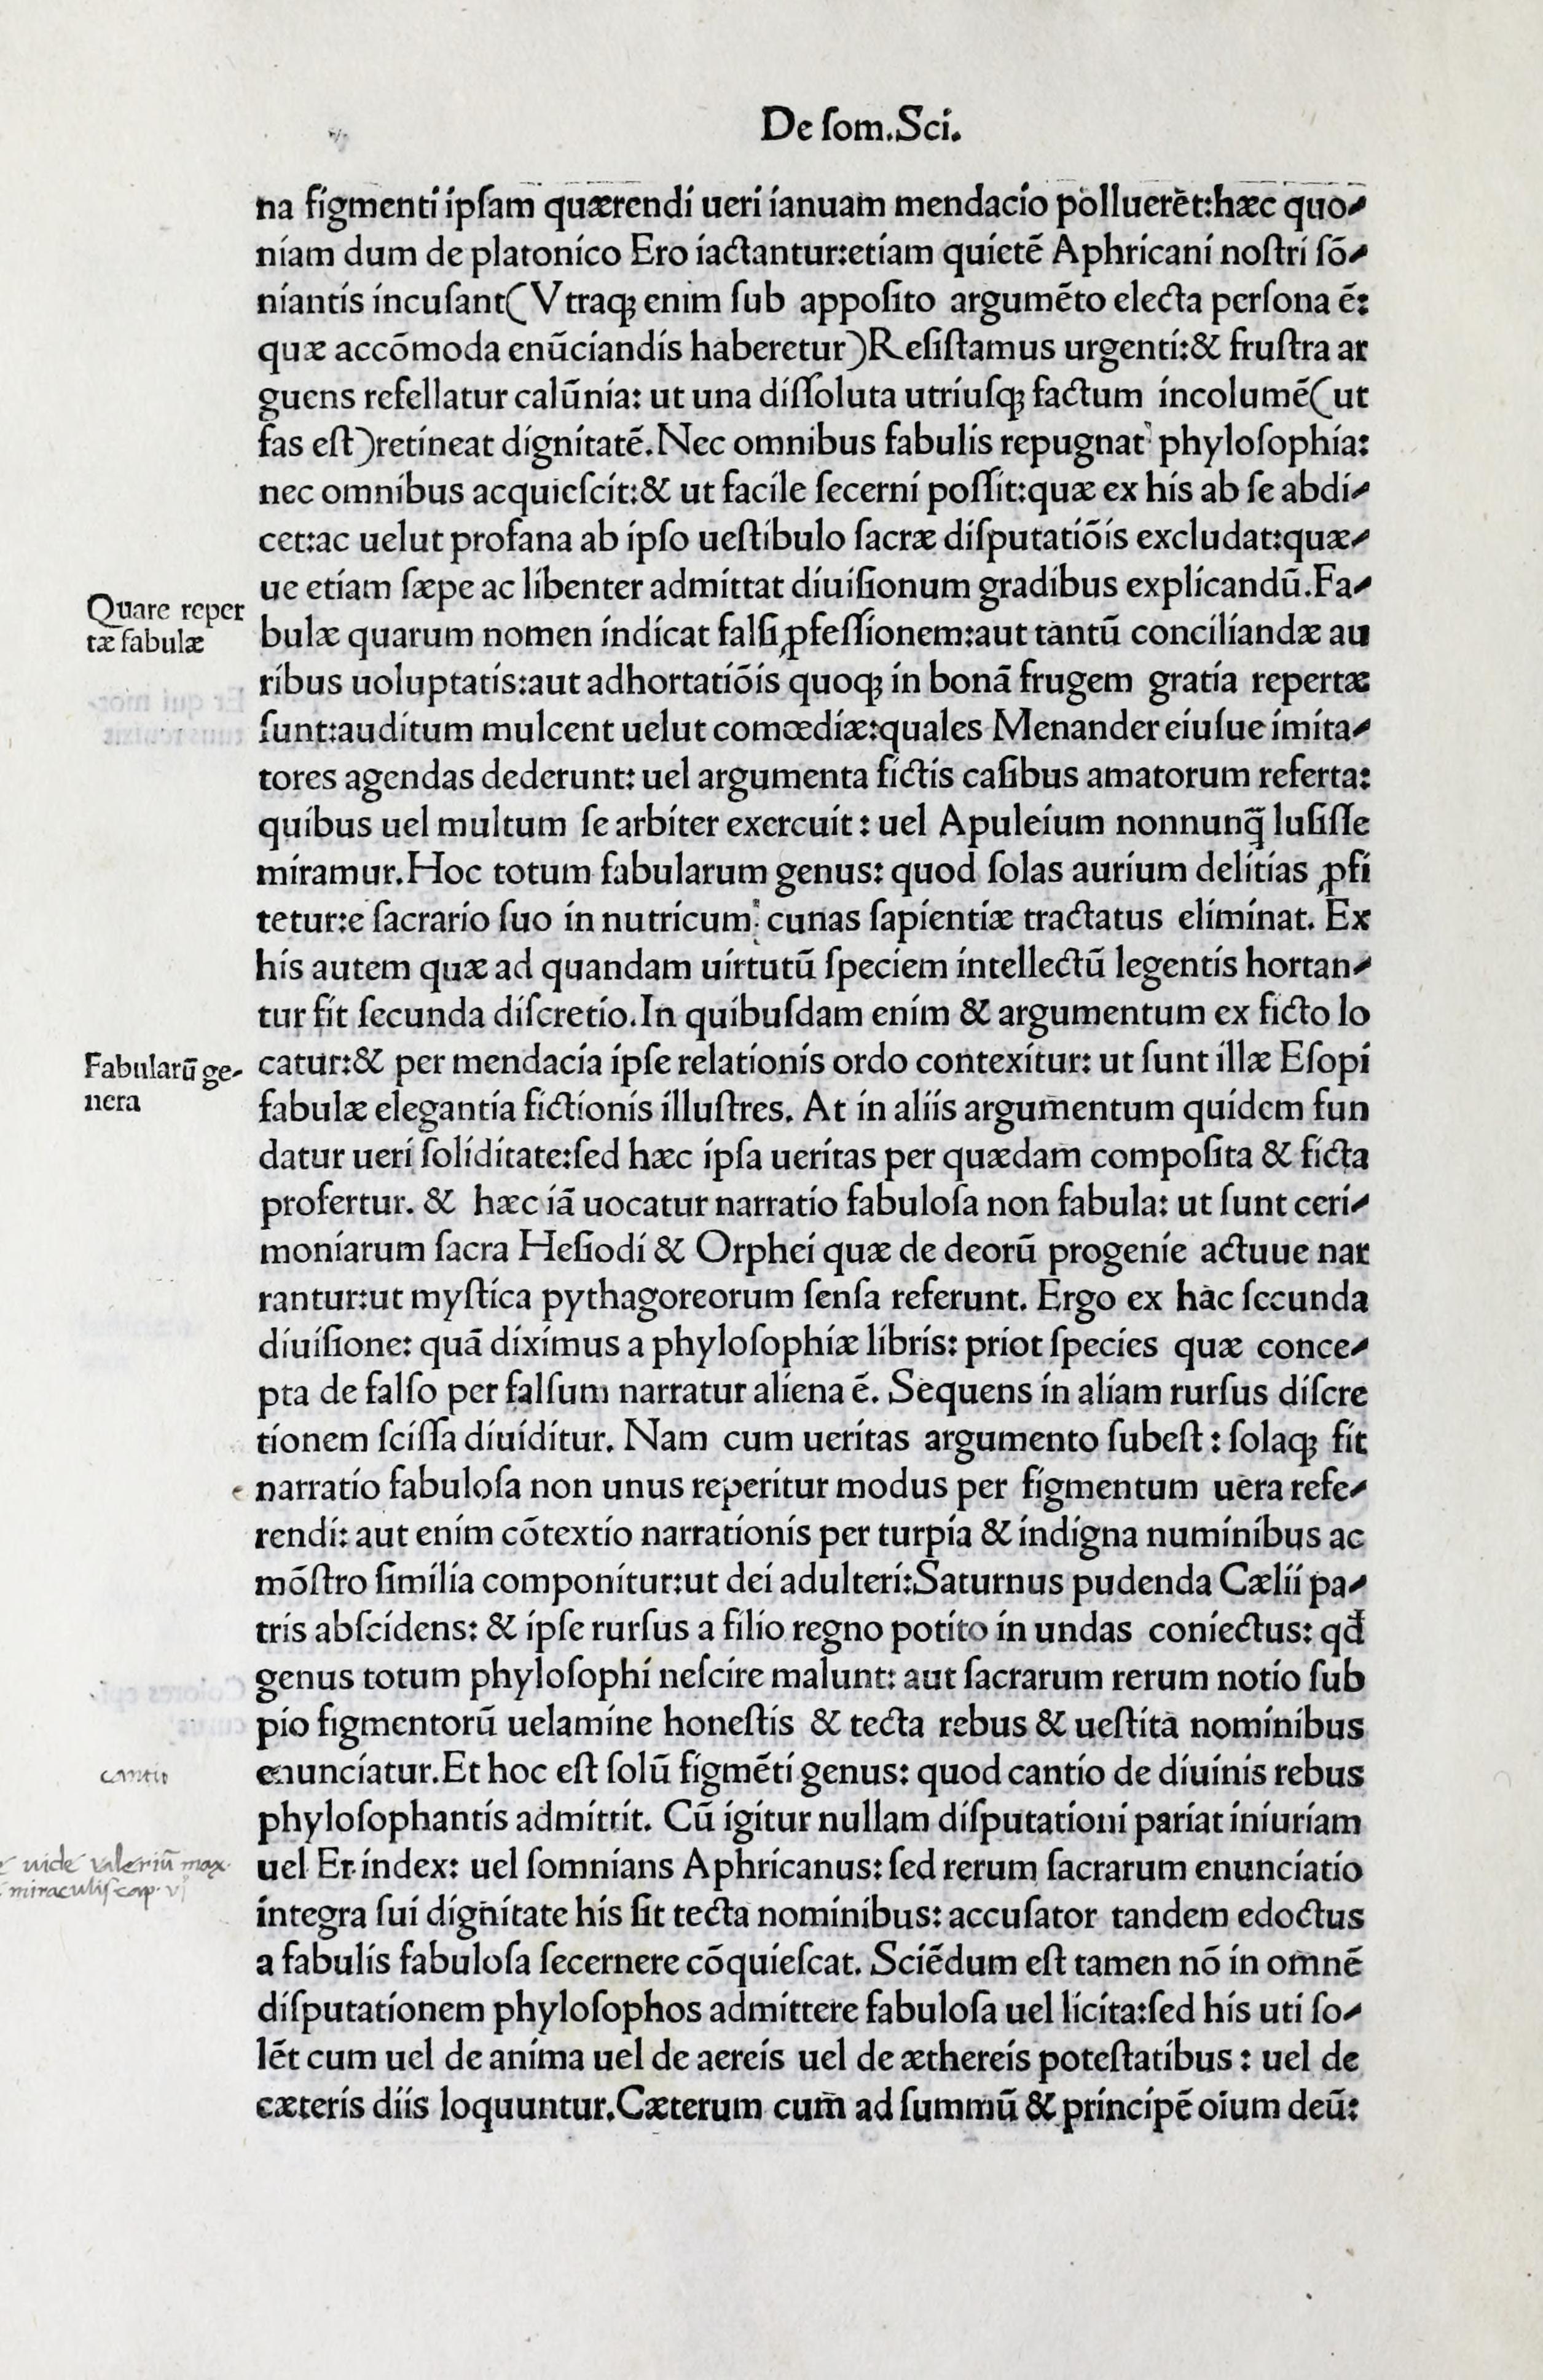 De ſom.Sci.
na figmenti ipſam quærendi ueri ianuam mendacio polluerēt:hæc quo-
niam dum de platonico Ero iactantur:etiam quietē Aphricani noſtri ſō-
niantis incuſant(Vtraqꝫ enim ſub appoſito argumēto electa perſona ē:
quæ accōmoda enūciandis haberetur)Reſiſtamus urgenti:& fruſtra ar
guens refellatur calūnia: ut una diſſoluta utriuſqꝫ factum incolumē(ut
fas eſt)retineat dignitatē.Nec omnibus fabulis repugnat phyloſophia:
nec omnibus acquieſcit:& ut facile ſecerni poſſit:quæ ex his ab ſe abdi-
cet:ac uelut profana ab ipſo ueſtibulo ſacræ diſputatiōis excludat:quæ-
ue etiam ſæpe ac libenter admittat diuiſionum gradibus explicandū.Fa-
Quare reper
tæ fabulæ
bulæ quarum nomen indicat falſi ꝓfeſſionem:aut tantū conciliandæ au
ribus uoluptatis:aut adhortatiōis quoqꝫ in bonā frugem gratia repertæ
ſunt:auditum mulcent uelut comœdiæ:quales Menander eiuſue imita-
tores agendas dederunt: uel argumenta fictis caſibus amatorum referta:
quibus uel multum ſe arbiter exercuit : uel Apuleium nonnunq̄ luſiſſe
miramur.Hoc totum fabularum genus: quod ſolas aurium delitias ꝓfi
tetur:e ſacrario ſuo in nutricum cunas ſapientiæ tractatus eliminat. Ex
his autem quæ ad quandam uirtutū ſpeciem intellectū legentis hortan-
tur fit ſecunda diſcretio.In quibuſdam enim & argumentum ex ficto lo
Fabularū ge-
nera
catur:& per mendacia ipſe relationis ordo contexitur: ut ſunt illæ Eſopi
fabulæ elegantia fictionis illuſtres. At in aliis argumentum quidem fun
datur ueri ſoliditate:ſed hæc ipſa ueritas per quædam compoſita & ficta
profertur. & hæc iā uocatur narratio fabuloſa non fabula: ut ſunt ceri-
moniarum ſacra Heſiodi & Orphei quæ de deorū progenie actuue nar
rantur:ut myſtica pythagoreorum ſenſa referunt. Ergo ex hac ſecunda
diuiſione: quā diximus a phyloſophiæ libris: priot ſpecies quæ conce-
pta de falſo per falſum narratur aliena ē. Sequens in aliam rurſus diſcre
tionem ſciſſa diuiditur. Nam cum ueritas argumento ſubeſt : ſolaqꝫ fit
narratio fabuloſa non unus reperitur modus per figmentum uera refe-
rendi: aut enim cōtextio narrationis per turpia & indigna numinibus ac
mōſtro ſimilia componitur:ut dei adulteri:Saturnus pudenda Cælii pa-
tris abſcidens: & ipſe rurſus a filio regno potito in undas coniectus: qđ
genus totum phyloſophi neſcire malunt: aut ſacrarum rerum notio ſub
pio figmentorū uelamine honeſtis & tecta rebus & ueſtita nominibus
cantio
enunciatur.Et hoc eſt ſolū figmēti genus: quod cantio de diuinis rebus
phyloſophantis admittit. Cū igitur nullam diſputationi pariat iniuriam
uide ualeriū max.
miraculis cap. vi
uel Er index: uel ſomnians Aphricanus: ſed rerum ſacrarum enunciatio
integra ſui dignitate his ſit tecta nominibus: accuſator tandem edoctus
a fabulis fabuloſa ſecernere cōquieſcat. Sciēdum eſt tamen nō in omnē
diſputationem phyloſophos admittere fabuloſa uel licita:ſed his uti ſo-
lēt cum uel de anima uel de aereis uel de æthereis poteſtatibus : uel de
cæteris diis loquuntur.Cæterum cum ad ſummū & principē oium deū: